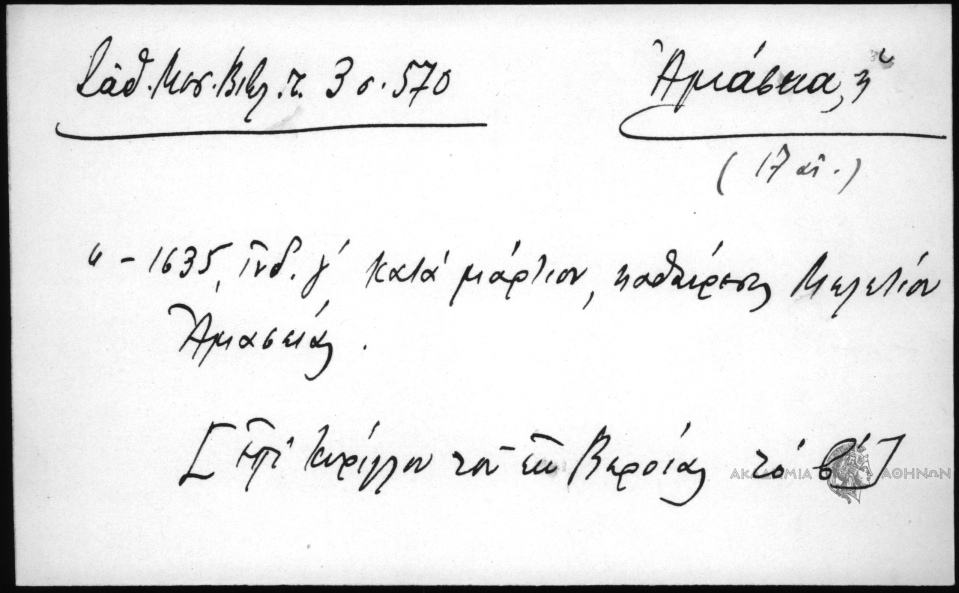 Σάθ. Μεσ. Βιβλ. τ. 3 σ. 570
Ἀμάσεια, ἡ
(17 αἰ.)
" – 1635, ἰνδ. γ΄ κατὰ μάρτιον, καθαίρεσις Μελετίου
Ἀμασείας.
[Ἐπὶ Κυρίλλου τοῦ ἐκ Βεροίας τὸ β΄]
ΑΚΑΔΗΜΙΑ ΑΘΗΝΩΝ